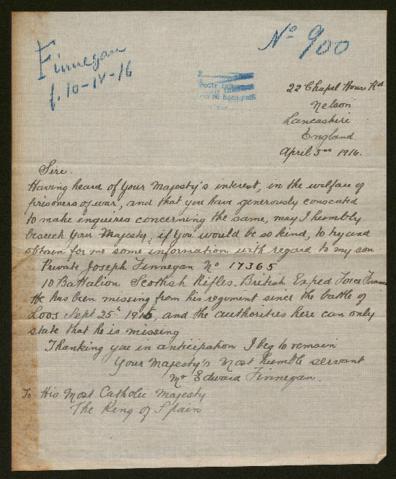 Finnegan
f. 10-IV-16
Nº 900
22 Chapel House Rd
Nelson
Lancashire
England
April 3rd 1916.
Sire
Having heard of Your Majesty's interest, in the welfare of
prisoners of war, and that you have generously consented
to make inquiries concerning the same, may I humbly
beseech Your Majesty, if you would be so kind, to try and
obtain for me some information with regard to my son
Private Joseph Finnegan Nº 17365
10 Battalion Scottish Rifles. British Exped Force France
He has been missing from his regiment since the battle of
Loos Sept 25th 1915, and the authorities here can only
state that he is missing
Thanking you in anticipation I beg to remain
Your Majesty's Most humble servant
Mr Edward Finnegan.
To His Most Catholic Majesty
The King of Spain